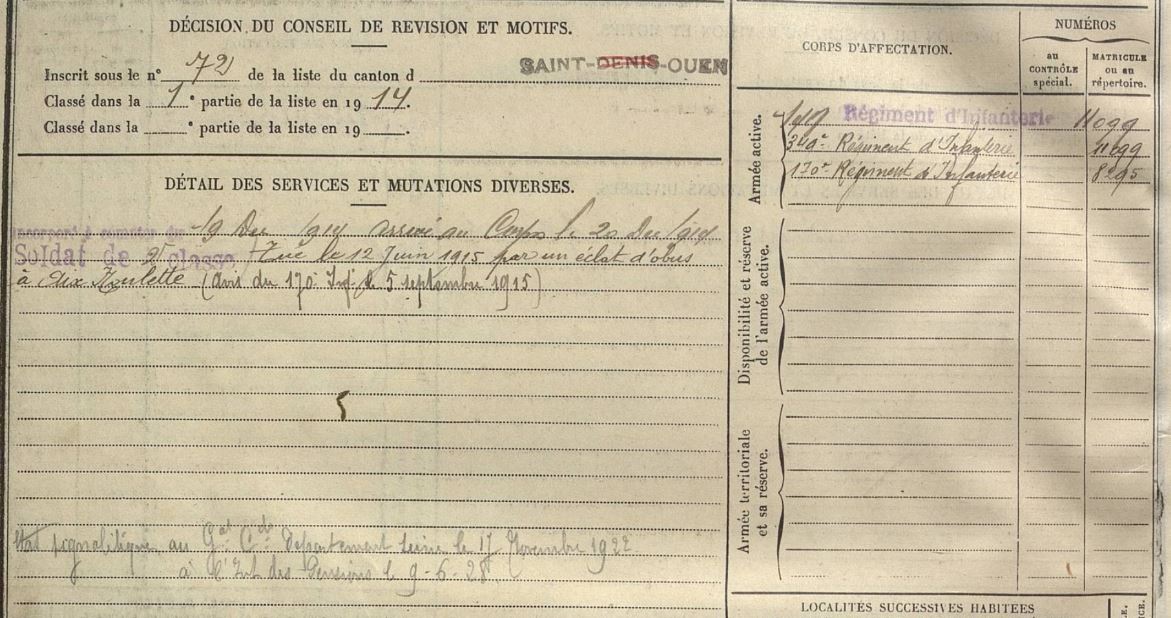 DÉCISION DU CONSEIL DE REVISION ET MOTIFS.
Inscrit sous le n° 72 de la liste du canton d SAINT-DENIS-OUEN
Classé dans la 1e partie de la liste en 1914.
Classé dans la e partie de la liste en 19 .
DÉTAIL DES SERVICES ET MUTATIONS DIVERSES.
Incorporé à compter du 19 Dec 1914 arrivé au Corps le 20 Dec 1914
Soldat de 2e classe Tué le 12 Juin 1915 par un éclat d'obus
à Aix Noulette (avis du 170e Inf. le 5 septembre 1915)
5
Etat signalétique au Gal Ct Département Seine le 17 Novembre 1922
à l'Int des Pensions le 9-6-28.
CORPS D'AFFECTATION.
NUMÉROS
au CONTRÔLE spécial.
MATRICULE ou au répertoire.
Armée active.
Régiment d'Infanterie 11099
340e Régiment d'Infanterie 11099
170e Régiment d'Infanterie 8295
Disponibilité et réserve de l'armée active.
Armée territoriale et sa réserve.
LOCALITÉS SUCCESSIVES HABITÉES